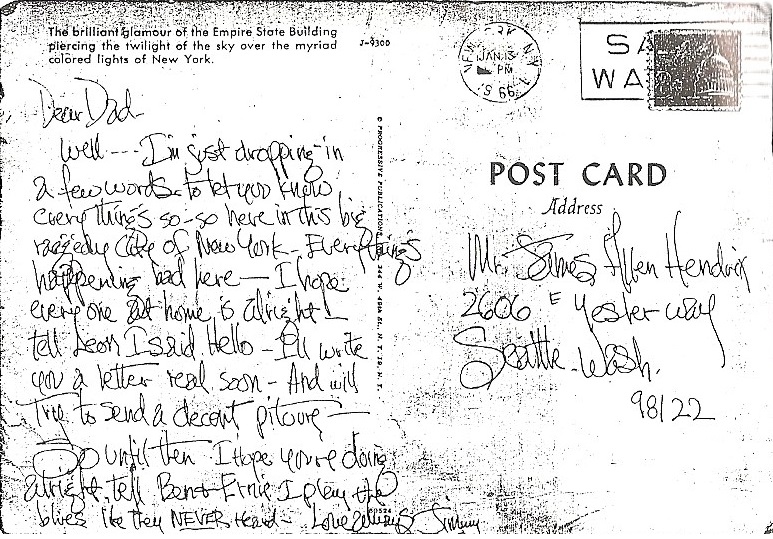 The brilliant glamour of the Empire State Building
piercing the twilight of the sky over the myriad
colored lights of New York.
J-9300
NEW YORK, N.Y.
JAN 13
PM
1966
SA
WA
POST CARD
Address
Mr. James Allen Hendrix
2606 E Yesler way
Seattle. Wash.
98122
Dear Dad-
Well --- I'm just dropping in
a few words to let you know
everything's so-so here in this big
raggedy City of New York - Everything's
happening bad here — I hope
everyone at home is alright!
tell Leon I said Hello - I'll write
you a letter real soon - And will
Try to send a decent pitcure —
So until then I Hope you're doing
alright. tell Ben & Ernie I play the
blues like they NEVER Heard - Love always Jimmy
© PROGRESSIVE PUBLICATIONS, W. 49th St. N. Y. 19, N. Y.